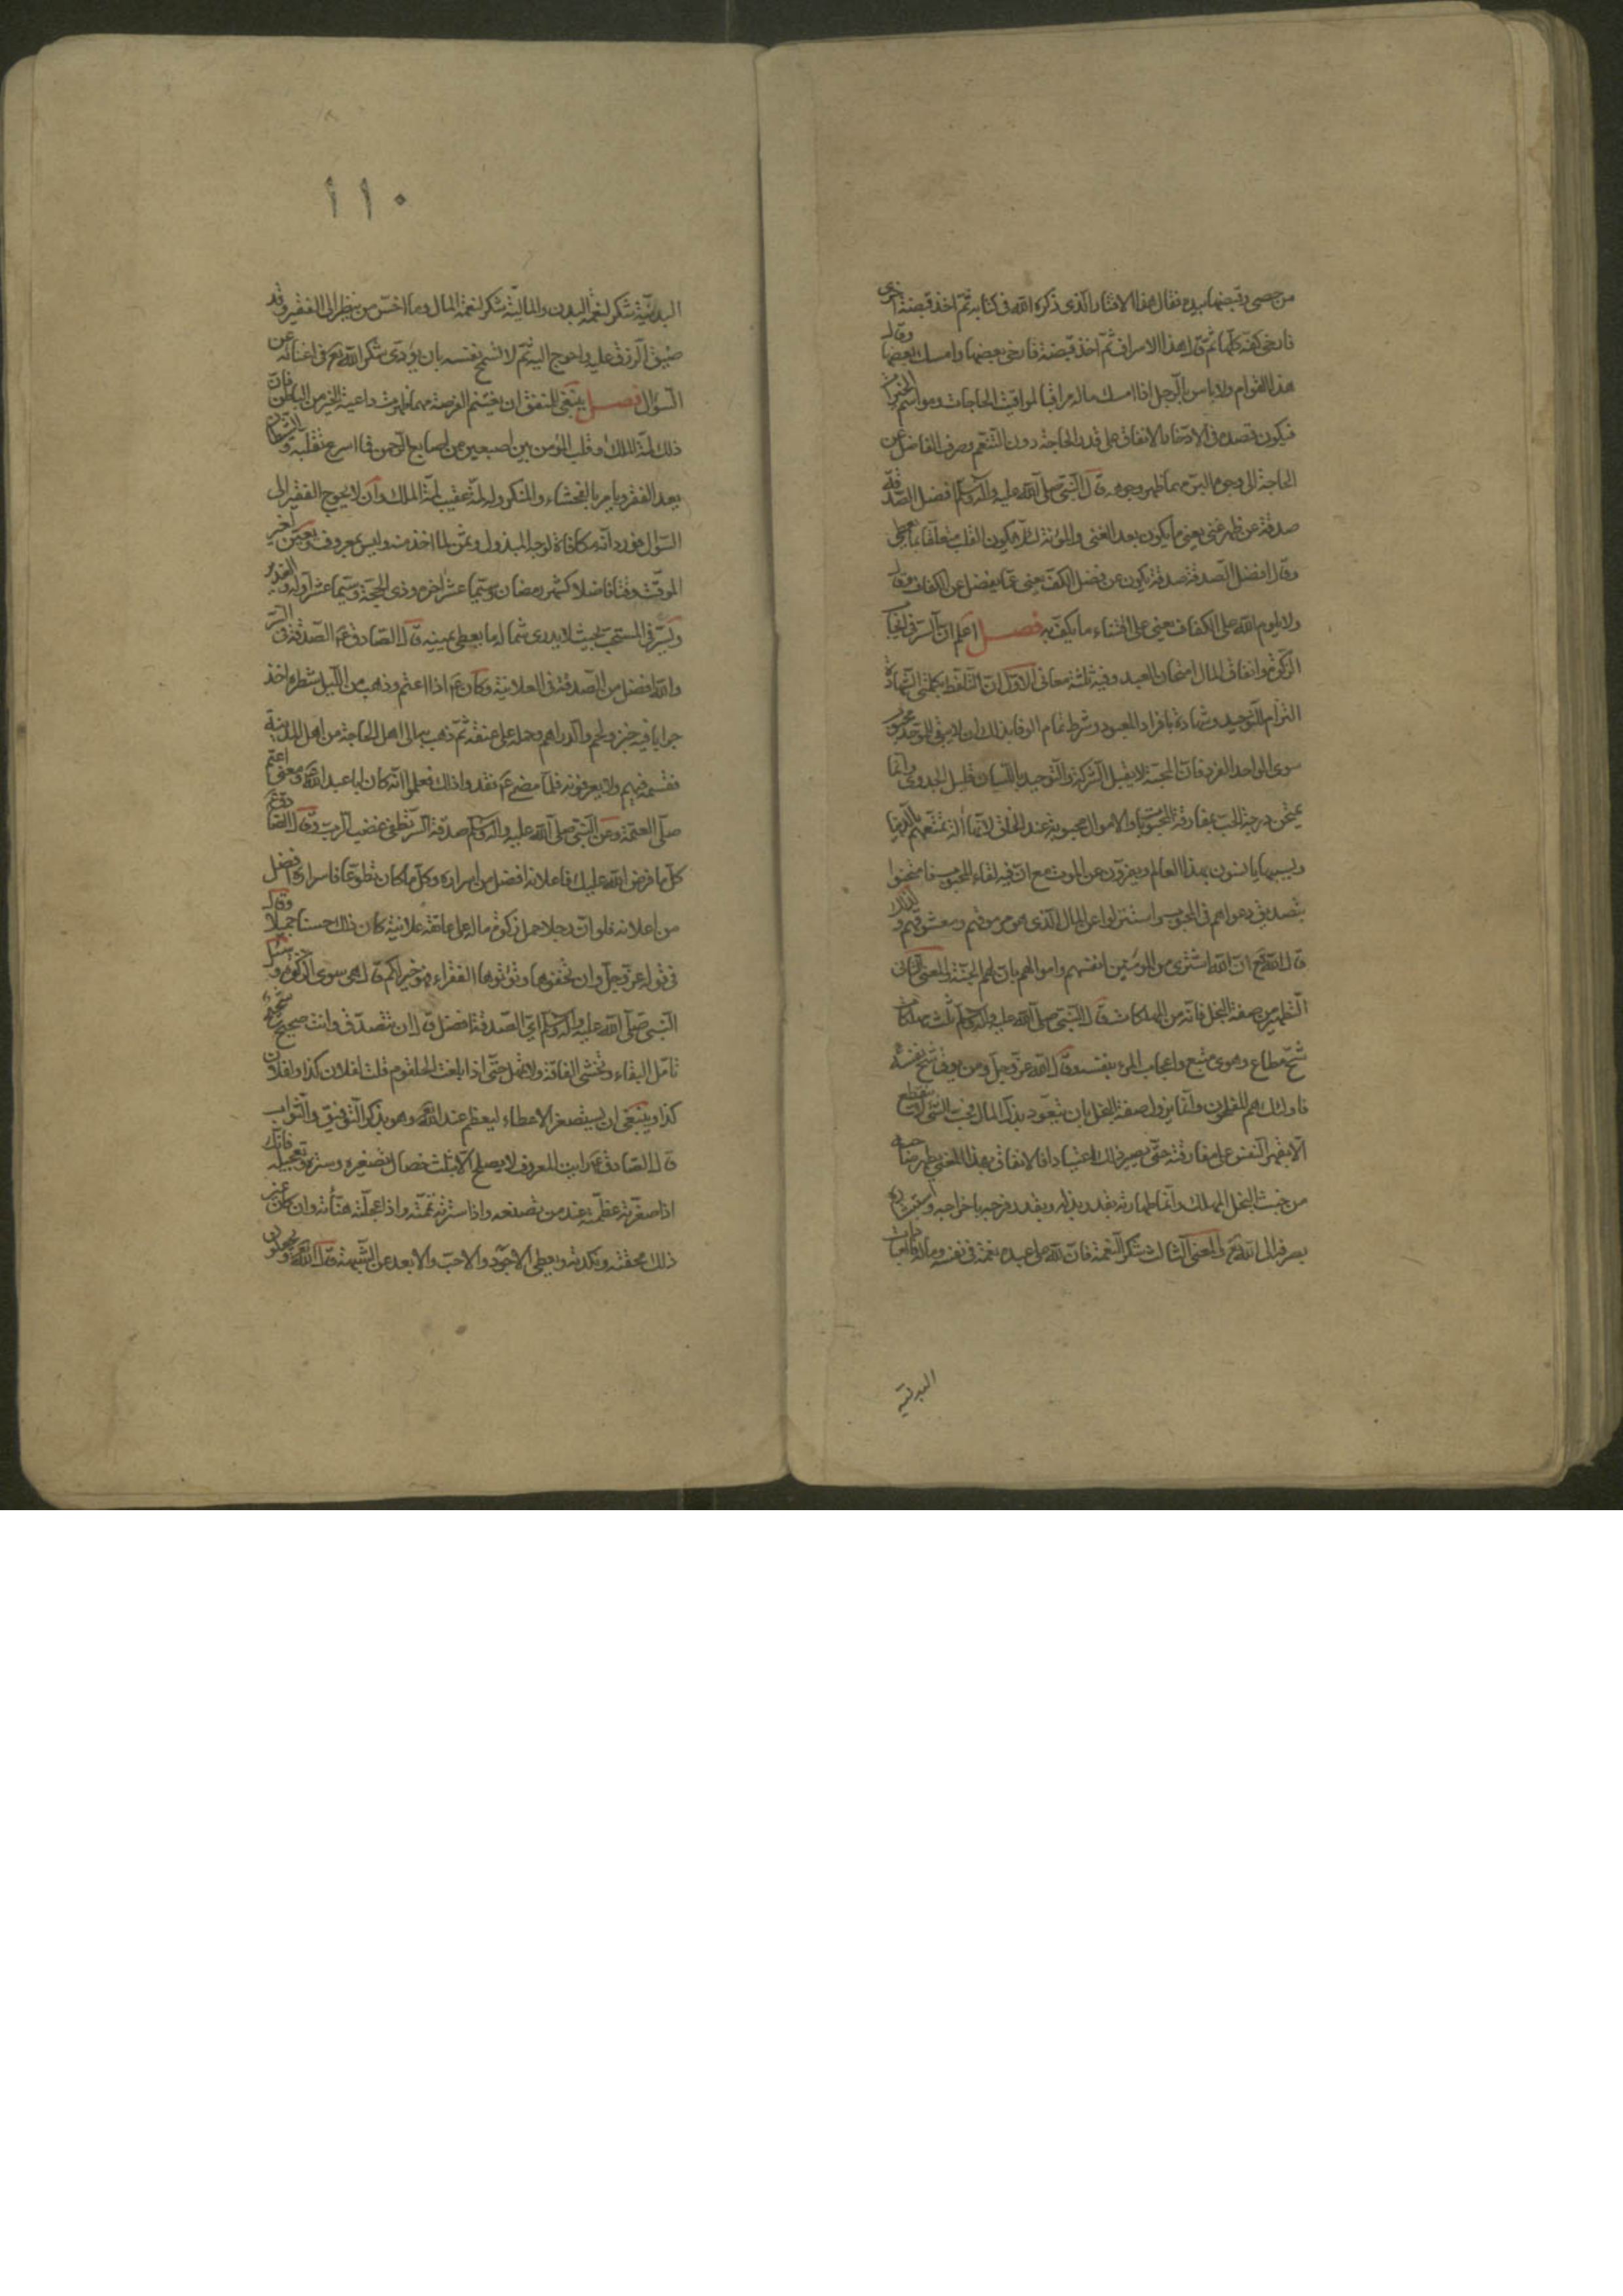 من حصى وقبضها بيده فقال هذا الاقتار الذى ذكره الله فى كتابه ثم اخذ قبضة اخرى
فارخى كفه كلها ثم قال هذا الاسراف ثم اخذ قبضة فارخى بعضها وامسك بعضها وقال
هذا القوام ولا باس بالرجل اذا امسك ماله مراقبا لمواقيت الحاجات ومواسم الخيرات
فيكون قصده فى الادخار الانفاق على قدر الحاجة دون التنعم وصرف الفاضل عن
الحاجة الى وجوه البر مهما ظهر وجوهه قال النبى صلى الله عليه واله وسلم افضل الصدقة
صدقة عن ظهر غنى يعنى ما يكون بعد الغنى والمؤنة لئلا يكون القلب متعلقا بما يعطى
وقال افضل الصدقة صدقة يكون عن فضل الكف يعنى عما يفضل عن الكفاف وقال
ولا يلوم الله على الكفاف يعنى على اقتناء ما يكف به فصل اعلم ان السر فى ايجاب
الزكوة وانفاق المال امتحان العبد وفيه ثلثة معانى الاول ان التلفظ بكلمتى الشهادة
التزام للتوحيد وشهادة بافراد المعبود وشرط تمام الوفا بذلك ان لا يبقى للموحد محبوب
سوى الواحد الفرد فان المحبة لا يقبل الشركة والتوحيد باللسان قليل الجدوى وانما
يمتحن درجة الحب بمفارقة المحبوبات والاموال محبوبة عند الخلق لانها الة تمتعهم بالدنيا
وبسببها يانسون بهذا العالم وينفرون عن الموت مع ان فيه لقاء المحبوب فامتحنوا
بتصديق دعواهم فى المحبوب واستنزلوا عن المال الذى هو مرموقهم ومعشوقهم ولذلك
قال الله تع ان الله اشترى من المؤمنين انفسهم واموالهم بان لهم الجنة المعنى الثانى
التطهير من صفة البخل فانه من المهلكات قال النبى صلى الله عليه واله وسلم ثلث مهلكات
شح مطاع وهوى متبع واعجاب المرء بنفسه وقال الله عز وجل ومن يوق شح نفسه
فاولئك هم المفلحون وانما يزول صفة البخل بان تتعود بذل المال فحب الشى لا ينقطع
الا بقهر النفس على مفارقته حتى يصير ذلك اعتيادا فالانفاق بهذا المعنى يطهر صاحبه
من خبث البخل المهلك وانما طهارته بقدر بذله وبقدر فرحه باخراجه واستبشاره
بصرفه الى الله تع المعنى الثالث شكر النعمة فان لله على عبده نعمة فى نفسه وماله فالعبادات
البدنية
١١٠
البدنية شكر لنعمة البدن والمالية شكر لنعمة المال وما اخس من ينظر الى الفقير وقد
ضيق الرزق عليه واحوج اليه ثم لا تسمح نفسه بان يؤدى شكر الله تع فى اغنائه عن
السؤال فصل ينبغى للمنفق ان يغتنم الفرصة مهما ظهرت داعية الخير من الباطن فان
ذلك لمة الملك وقلب المؤمن بين اصبعين من اصابع الرحمن فما اسرع تقلبه والشيطان
يعد الفقر ويامر بالفحشاء والمنكر وله لمة عقيب لمة الملك وان لا يحوج الفقير الى
السؤال فورد انه مكافاة لوجهه المبذول وثمن لما اخذ منه وليس بمعروف ويعين لخير
الموقت وقتا فاضلا كشهر رمضان وسيما عشر اخره وذى الحجة وسيما عشر اوله والغدير
ويسر فى المستحب بحيث لا يدرى شماله ما يعطى يمينه قال الصادق ع الصدقة فى السر
والله افضل من الصدقة فى العلانية وكان ع اذا اعتم وذهب من الليل شطره اخذ
جرابا فيه خبز ولحم والدراهم وحمله على عنقه ثم ذهب به الى اهل الحاجة من اهل المدينة
فقسمه فيهم ولا يعرفونه فلما مضى ع فقدوا ذلك فعلموا انه كان ابا عبد الله ع ومعنى اعتم
صلى العتمة وعن النبى صلى الله عليه واله وسلم صدقة السر تطفى غضب الرب وقال الصادق ع
كل ما فرض الله عليك فاعلانه افضل من اسراره وكل ما كان تطوعا فاسراره افضل
من اعلانه فلو ان رجلا حمل زكوة ماله على عاتقه علانية كان ذلك حسنا جميلا وقال
فى قوله عز وجل وان تخفوها وتؤتوها الفقراء فهو خير لكم قال هى سوى الزكوة وسئل
النبى صلى الله عليه واله وسلم اى الصدقة افضل قال ان تتصدق وانت صحيح شحيح
تامل البقاء وتخشى الفاقة ولا تمهل حتى اذا بلغت الحلقوم قلت لفلان كذا ولفلان
كذا وينبغى ان يستصغر الاعطاء ليعظم عند الله وهو بذكر التوفيق والثواب
قال الصادق ع رايت المعروف لا يصلح الا بثلث خصال تصغيره وستره وتعجيله فانك
اذا صغرته عظمته عند من تصنعه واذا سترته تممته واذا عجلته هنأته وان كان غير
ذلك محقته ونكدته ويعطى الاجود والاحب والابعد عن الشبهة قال الله تع ويجعلون